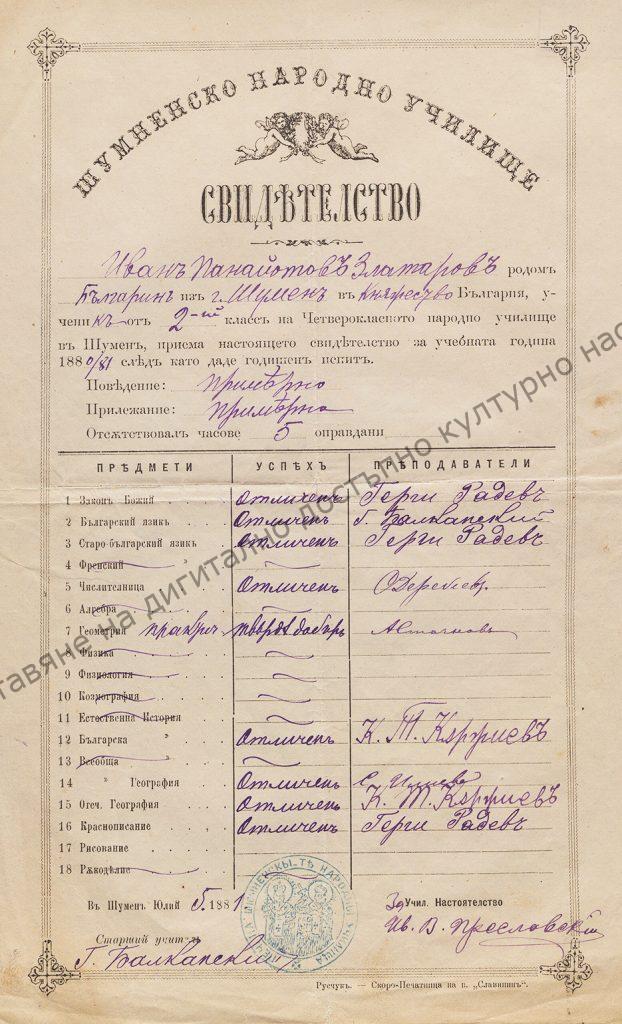 ШУМНЕНСКО НАРОДНО УЧИЛИЩЕ
СВИДѢТЕЛСТВО
Иванъ Панайотовъ Златаровъ родом
Българинъ изъ г. Шуменъ въ Княжество България, у-
ченикъ отъ 2-ий классъ на Четверокласното народно училище
въ Шуменъ, приема настоящето свидѣтелство за учебната година
1880/81 слѣдъ като даде годишенъ испитъ.
Поведение: Примѣрно
Прилежание: Примѣрно
Отсѫтствовалъ часове 5 оправдани
ПРѢДМЕТИ УСПѢХЪ ПРѢПОДАВАТЕЛИ
1 Законъ Божий Отличенъ Герги Радевъ
2 Българский язикъ Отличенъ Г. Балканский
3 Старо-българский язикъ Отличенъ Герги Радевъ
4 Френский
5 Числителница Отличенъ
6 Алгебра
7 Геометрия твърдѣ добъръ
8 Физика
9 Физиология
10 Козмография
11 Естественна История
12 Българска " Отличенъ К. Т.
13 Всеобща "
14 " География Отличенъ
15 Отеч. География Отличенъ К. Т.
16 Краснописание Отличенъ Герги Радевъ
17 Рисование
18 Рѫкоделие
Въ Шуменъ Юлий 5. 1881
За Учил. Настоятелство
Ив. В. Преславский
Старший учитель
Г. Балканский
Русчукъ. — Скоро-Печатница на в. „Славянинъ".
тавяне на дигитално достъпно културно нас